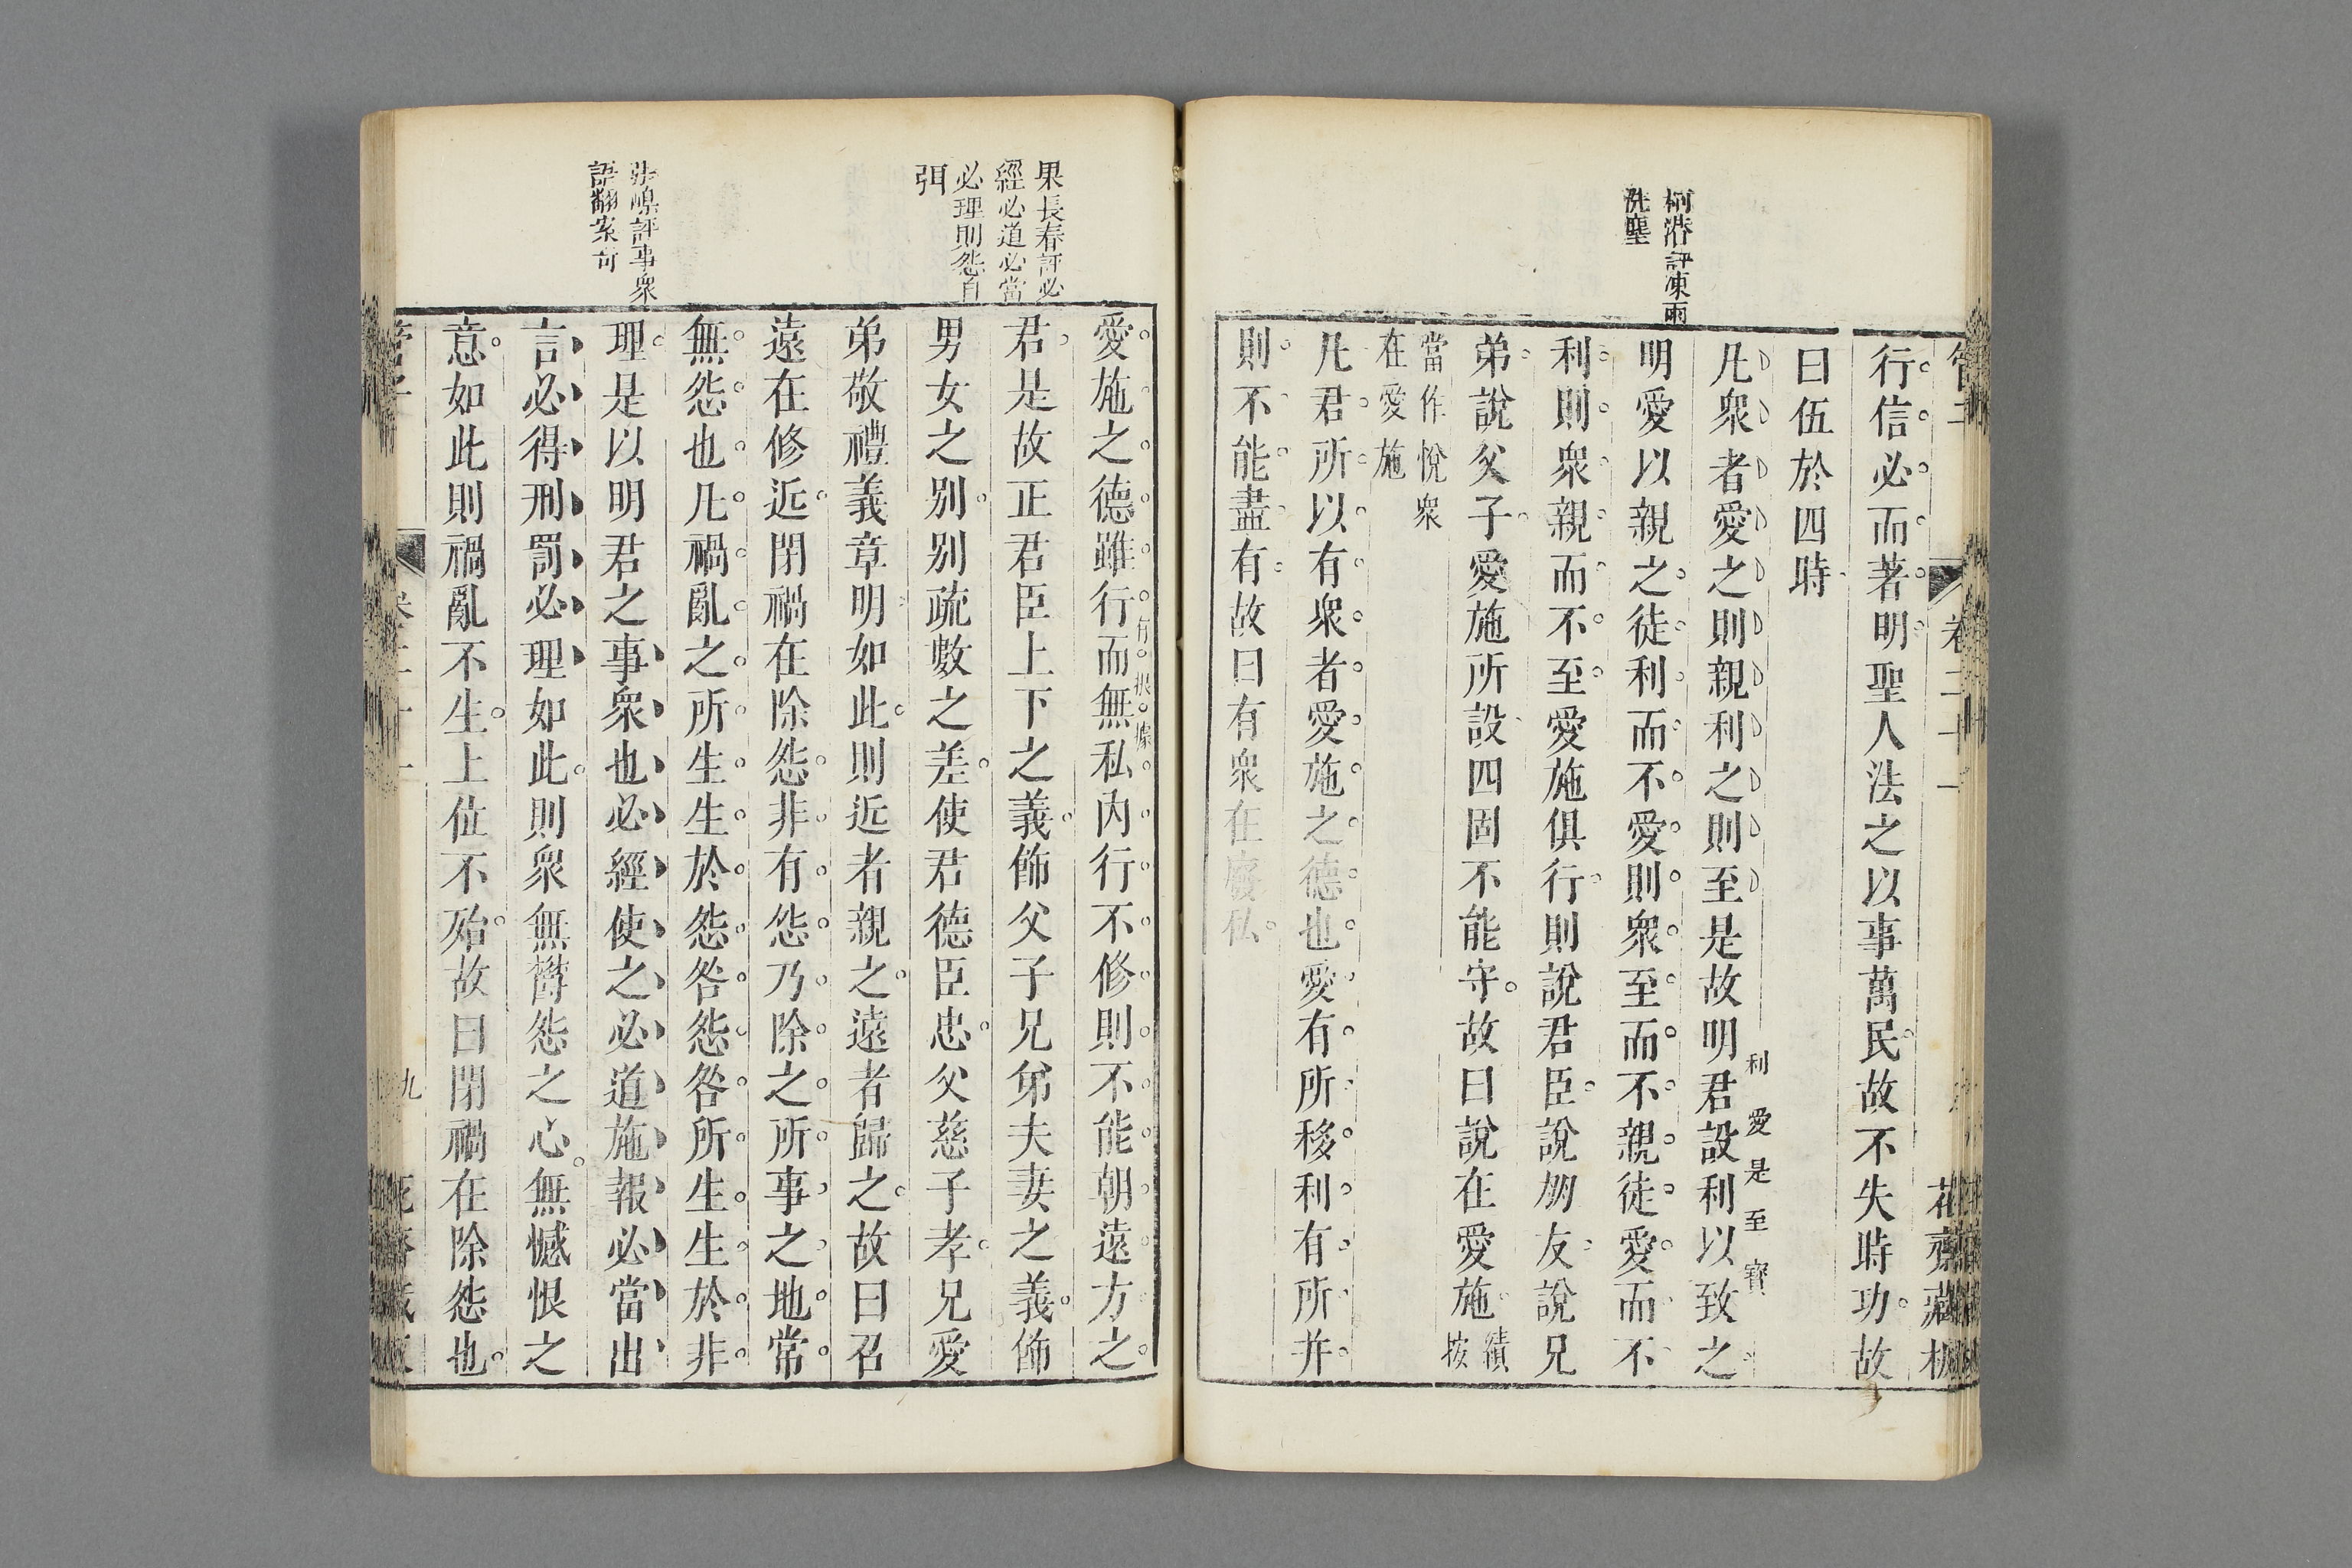 管子
卷二十一
花齋藏板
柯潛評凍雨
洗塵
行信必而著明聖人法之以事萬民故不失時功故
曰伍於四時
凡衆者愛之則親利之則至是故明君設利以致之
利愛是至寶
明愛以親之徒利而不愛則衆至而不親徒愛而不
利則衆親而不至愛施俱行則說君臣說朋友說兄
弟說父子愛施所設四固不能守故曰說在愛施
績按
當作悅衆
在愛施
凡君所以有衆者愛施之德也愛有所移利有所并
則不能盡有故曰有衆在廢私
果長春評必
經必道必當
必理則怨自
弭
張嵲評事衆
語翻案奇
愛施之德雖行而無私內行不修則不能朝遠方之
有根據
君是故正君臣上下之義飾父子兄弟夫妻之義飾
男女之别别疏數之差使君德臣忠父慈子孝兄愛
弟敬禮義章明如此則近者親之遠者歸之故曰召
遠在修近閉禍在除怨非有怨乃除之所事之地常
無怨也凡禍亂之所生生於怨咎怨咎所生生於非
理是以明君之事衆也必經使之必道施報必當出
言必得刑罰必理如此則衆無鬱怨之心無憾恨之
意如此則禍亂不生上位不殆故曰閉禍在除怨也
管子
卷二十一
九
花齋藏板